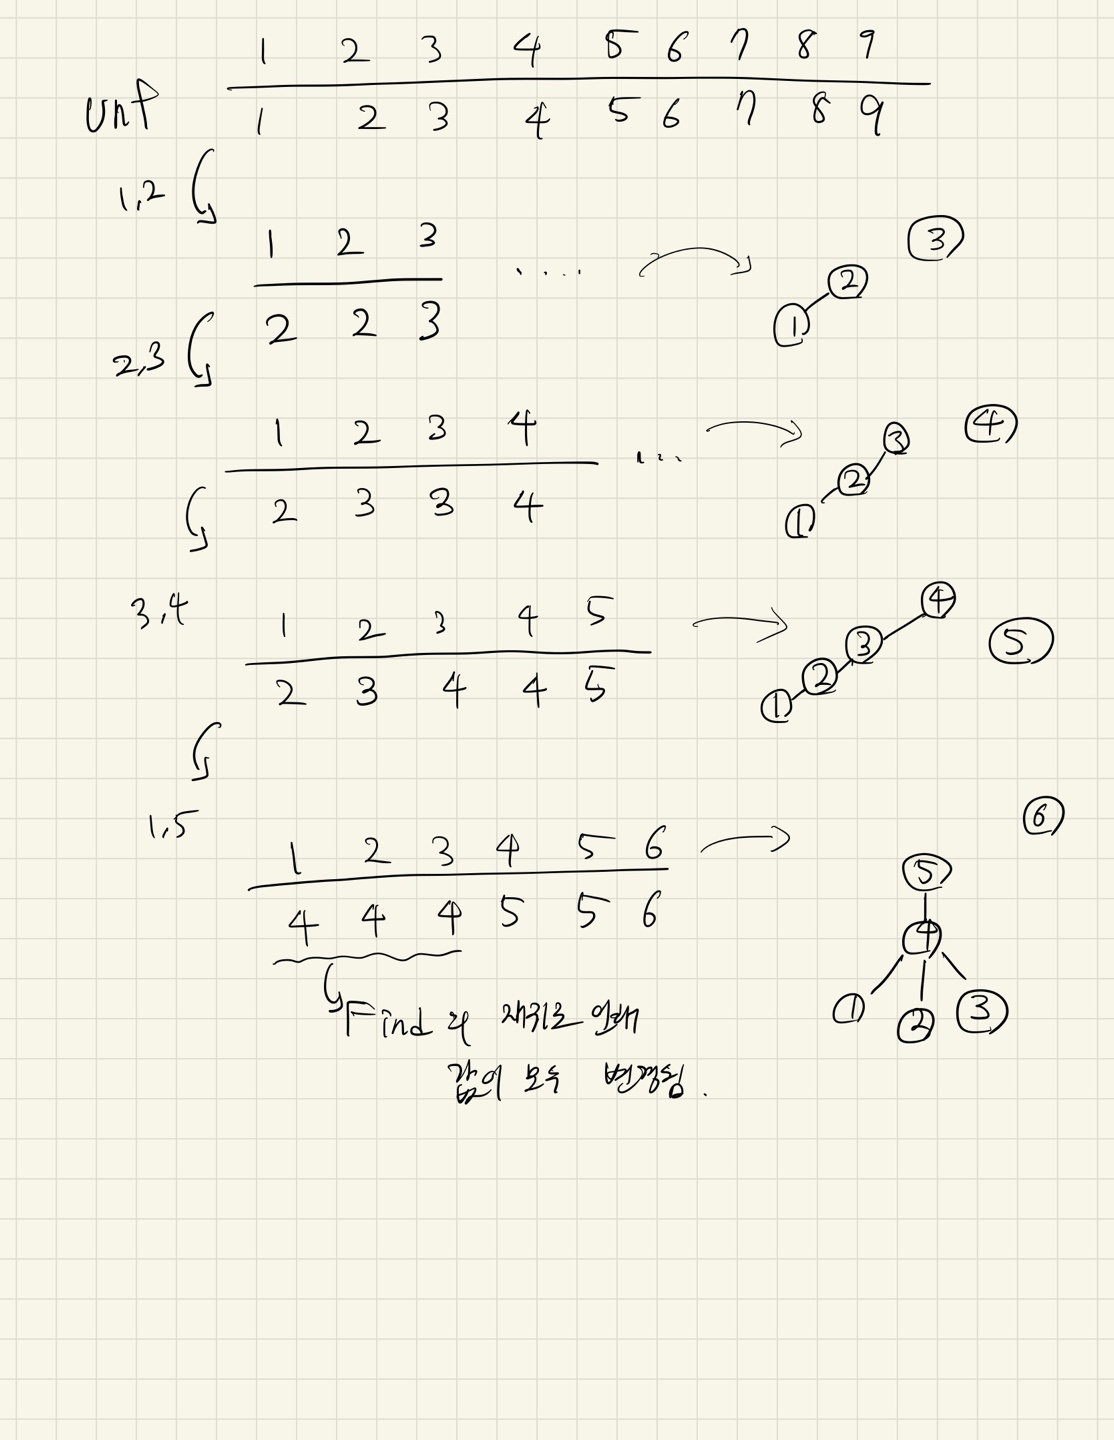 1 2 3 4 5 6 7 8 9
unf 1 2 3 4 5 6 7 8 9
1,2
1 2 3 ....
2 2 3
3
2
1
2,3
1 2 3 4 ...
2 3 3 4
4
3
2
1
3,4
1 2 3 4 5
2 3 4 4 5
4
3
2
1
5
1,5
1 2 3 4 5 6
4 4 4 5 5 6
6
5
4
1 2 3
Find의 재귀로 인해
값이 모두 변경됨.